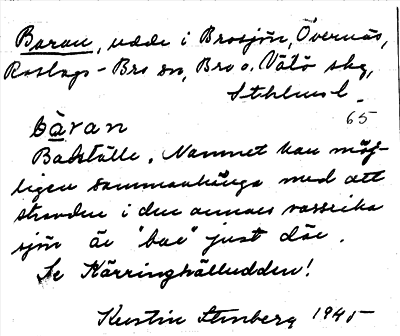 Baran, udde i Brosjön, Övernäs,
Roslags-Bro sn, Bro o. Vätö skg,
Sthlms l.
65
bàran
Badställe. Namnet kan möj-
ligen sammanhänga med att
stranden i den annars vassrika
sjön är "bar" just där.
Se Kärringhälludden!
Kerstin Stenberg 1945